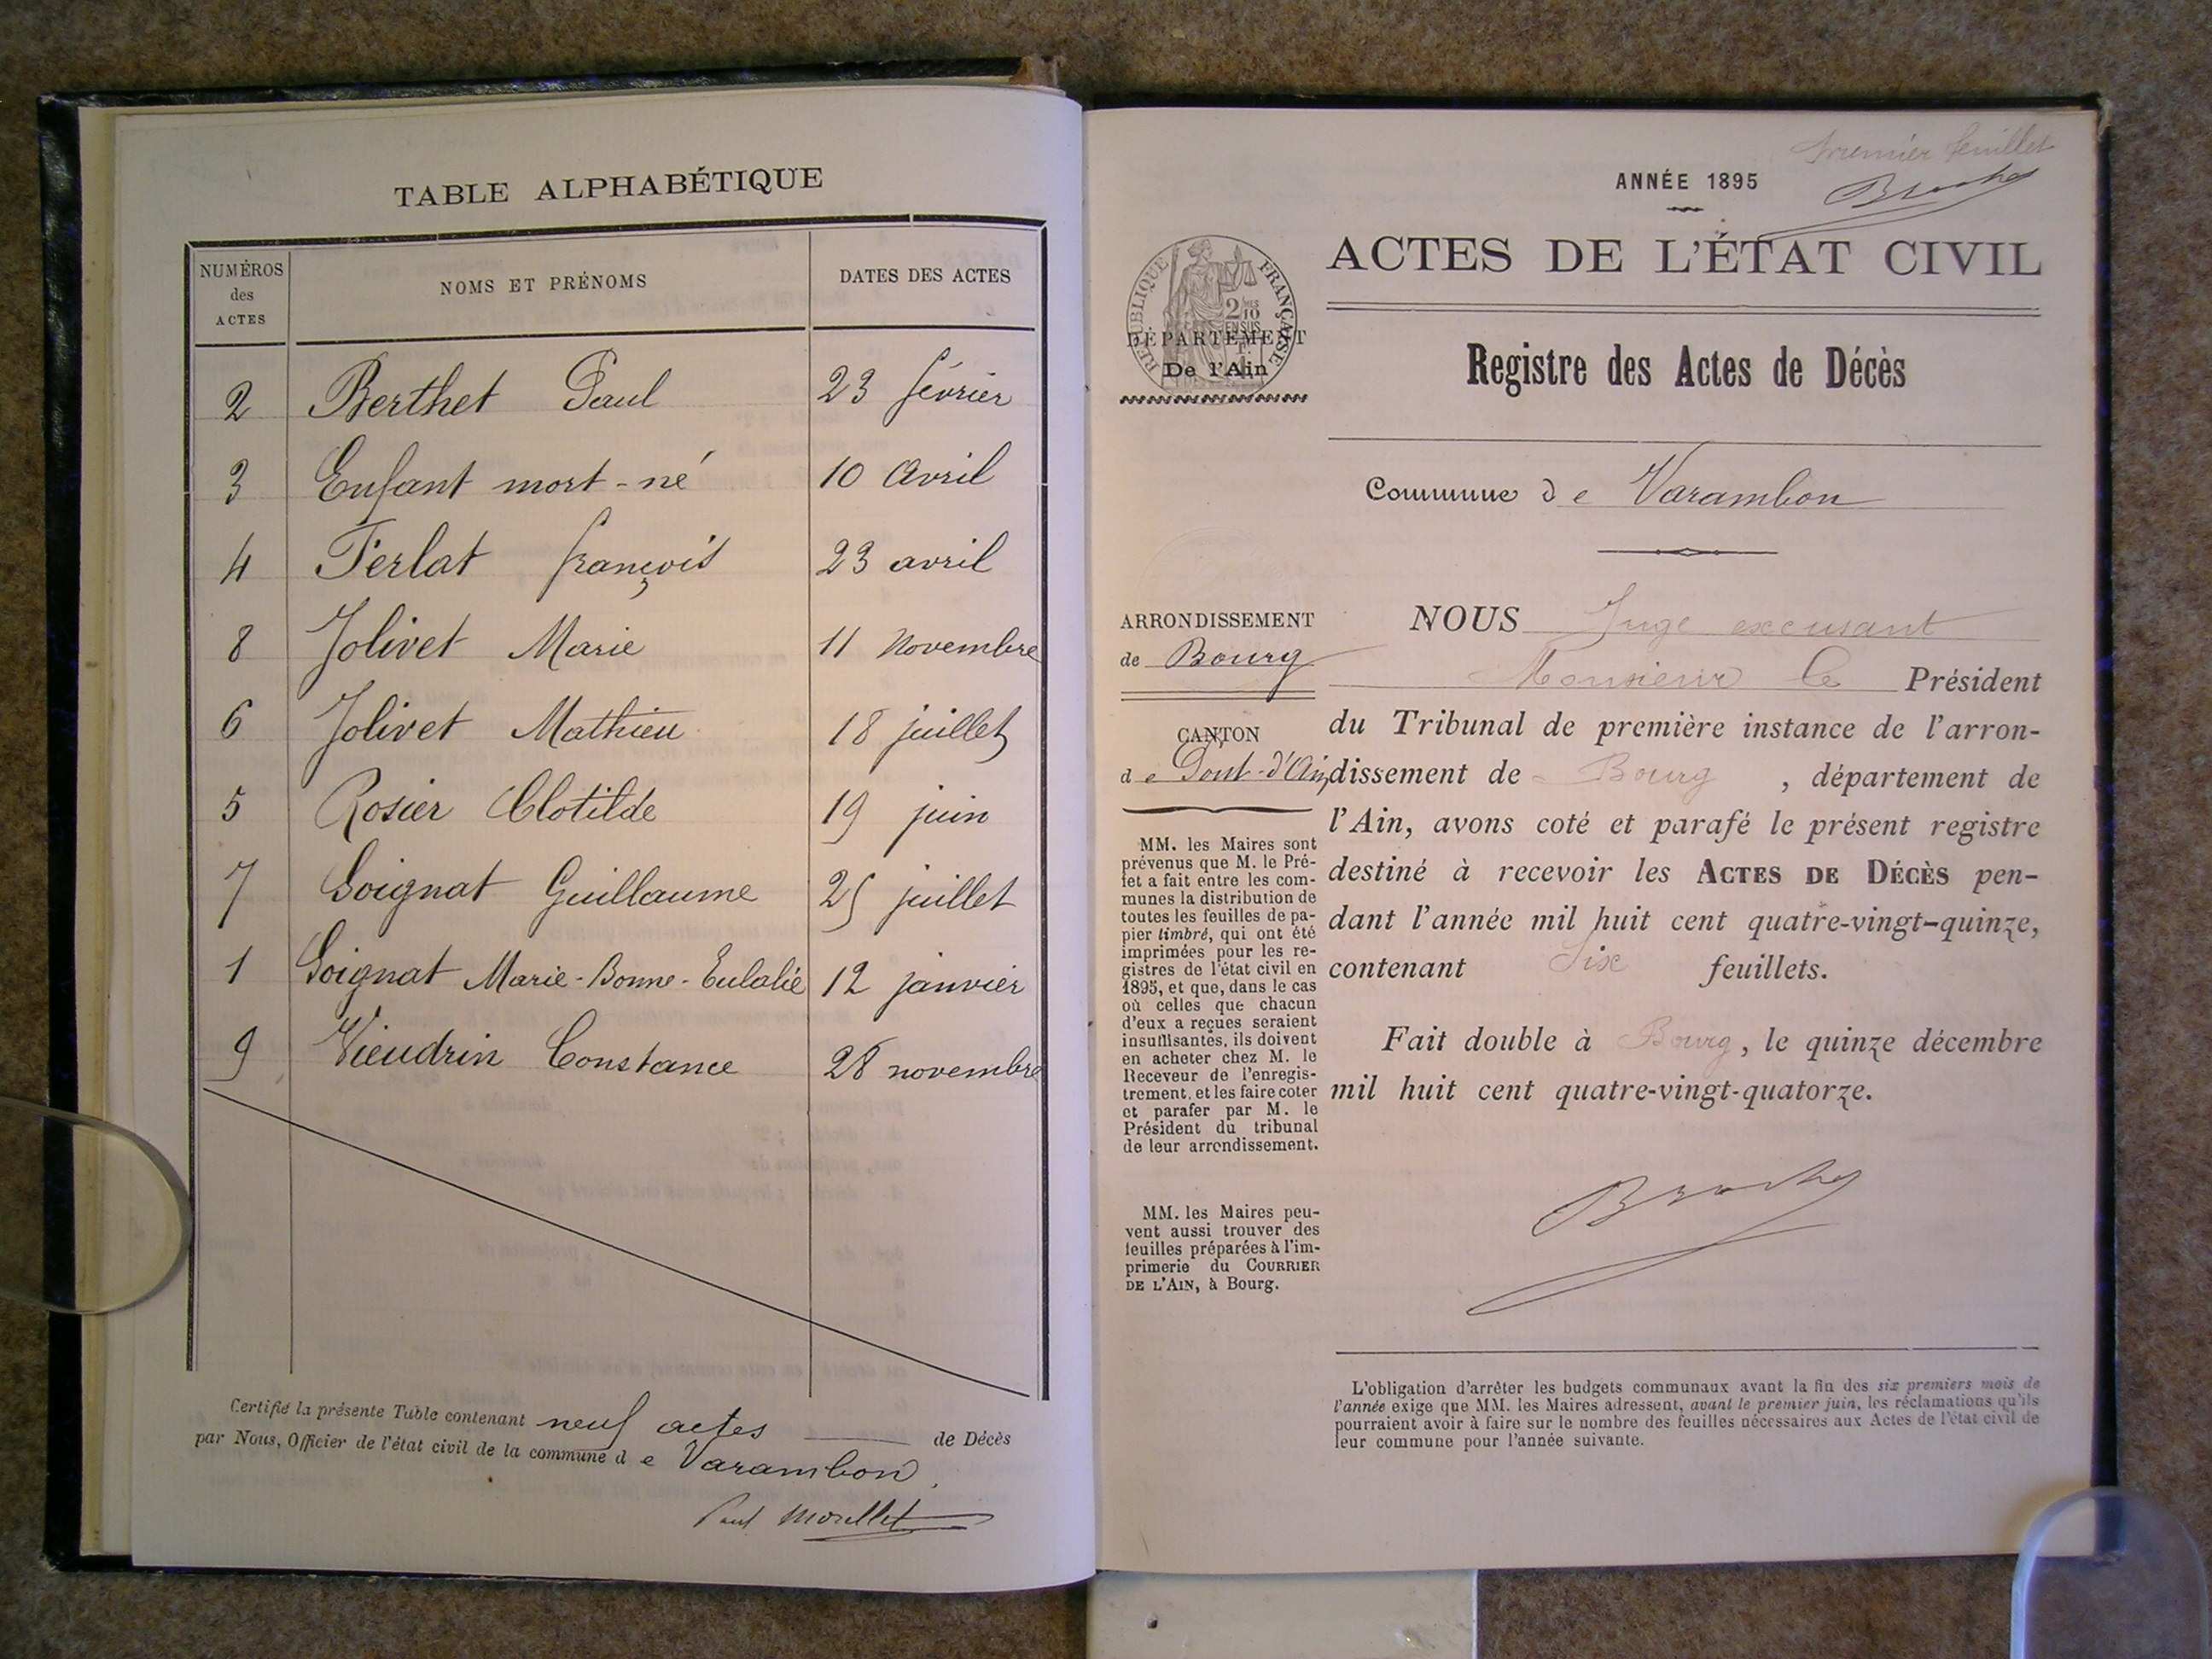 TABLE ALPHABÉTIQUE
NUMÉROS des ACTES NOMS ET PRÉNOMS DATES DES ACTES
2 Berthet Paul 23 février
3 Enfant mort-né 10 avril
4 Ferlat françois 23 avril
8 Jolivet Marie 11 novembre
6 Jolivet Mathieu 18 juillet
5 Rosier Clotilde 19 juin
7 Soignat Guillaume 25 juillet
1 Soignat Marie-Bonne-Eulalie 12 janvier
9 Vieudrin Constance 28 novembre
Certifié la présente Table contenant neuf actes de Décès
par Nous, Officier de l'état civil de la commune de Varambon.
Paul Morellet
premier feuillet
ANNÉE 1895
ACTES DE L'ÉTAT CIVIL
RÉPUBLIQUE FRANÇAISE
2/10 EN SUS
DÉPARTEMENT
De l'Ain
Registre des Actes de Décès
Commune de Varambon
ARRONDISSEMENT
de Bourg
CANTON
de Pont-d'Ain
MM. les Maires sont
prévenus que M. le Pré-
fet a fait entre les com-
munes la distribution de
toutes les feuilles de pa-
pier timbré, qui ont été
imprimées pour les re-
gistres de l'état civil en
1895, et que, dans le cas
où celles que chacun
d'eux a reçues seraient
insuffisantes, ils doivent
en acheter chez M. le
Receveur de l'enregis-
trement, et les faire coter
et parafer par M. le
Président du tribunal
de leur arrondissement.
MM. les Maires peu-
vent aussi trouver des
feuilles préparées à l'im-
primerie du COURRIER
DE L'AIN, à Bourg.
NOUS Juge excusant
Monsieur le Président
du Tribunal de première instance de l'arron-
dissement de Bourg, département de
l'Ain, avons coté et parafé le présent registre
destiné à recevoir les ACTES DE DÉCÈS pen-
dant l'année mil huit cent quatre-vingt-quinze,
contenant Six feuillets.
Fait double à Bourg, le quinze décembre
mil huit cent quatre-vingt-quatorze.
L'obligation d'arrêter les budgets communaux avant la fin des six premiers mois de
l'année exige que MM. les Maires adressent, avant le premier juin, les réclamations qu'ils
pourraient avoir à faire sur le nombre des feuilles nécessaires aux Actes de l'état civil de
leur commune pour l'année suivante.